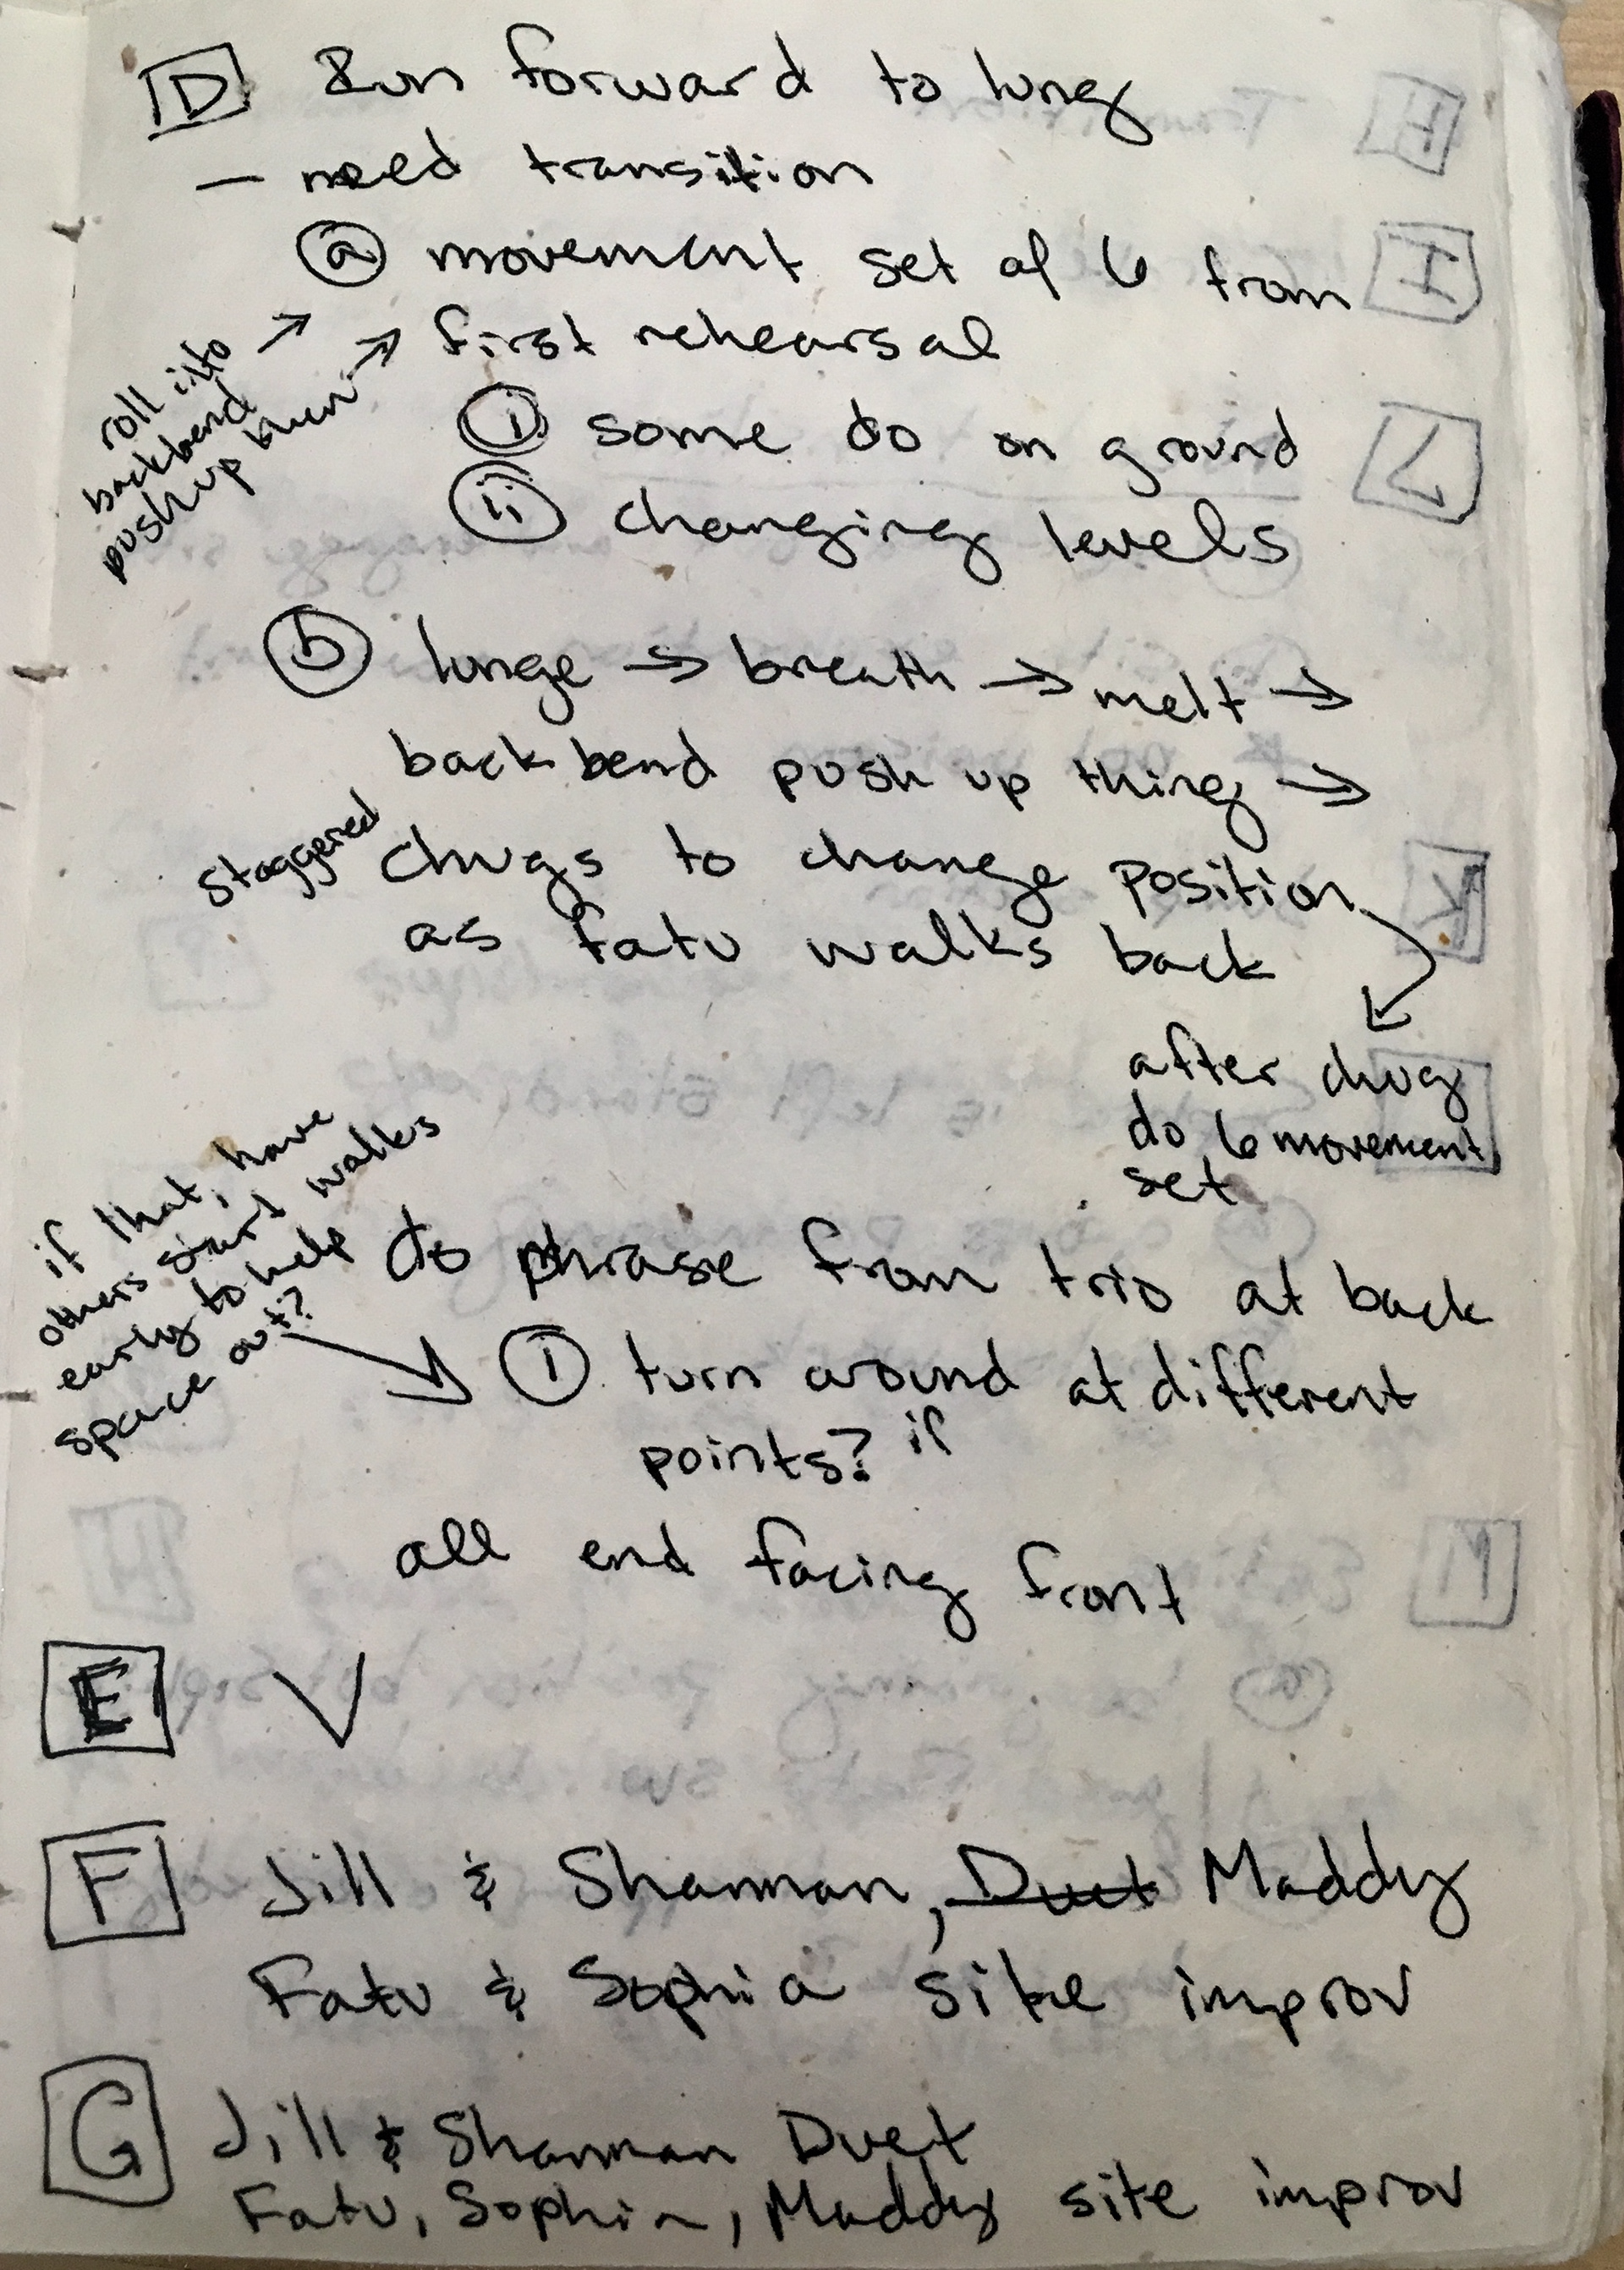 D Run forward to lung
— need transition
ⓐ movement set of 6 from
first rehearsal
roll into →
backbend
push up then →
ⓘ some do on ground
ⓘⓘ changing levels
ⓑ lunge → breath → melt →
backbend push up thing →
staggered chugs to change position
as fatu walks back
after chug
do 6 movement
set
if that, have
others start walks
early to help
space out?
do phrase from trio at back
ⓘ turn around at different
points? if
all end facing front
E V
F Jill & Shannan, Duet Maddy
Fatu & Sophia site improv
G Jill & Shannan Duet
Fatu, Sophia, Maddy site improv